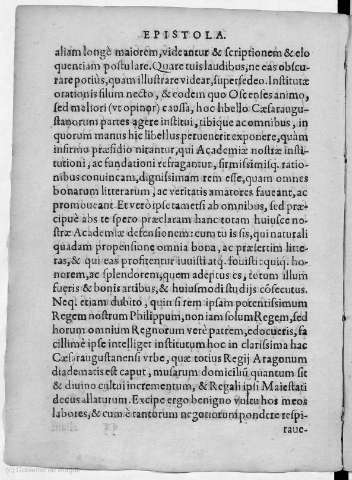 EPISTOLA.
aliam longè maiorem, videantur & scriptionem & elo
quentiam postulare. Quare tuis laudibus, ne eas obscu-
rare potius, quam illustrare videar, supersedeo. Institutæ
orationis filum necto, & eodem quo Oscenses animo,
sed meliori (vt opinor) caussa, hoc libello Cæsaraugu-
stanorum partes agere institui, tibique ac omnibus, in
quorum manus hic libellus peruenerit exponere, quàm
infirmo præsidio nitantur, qui Academiæ nostræ insti-
tutioni, ac fundationi refragantur, firmissimisq. ratio-
nibus conuincam, dignissimam rem esse, quam omnes
bonarum litterarum, ac veritatis amatores faueant, ac
promoueant Et verò ipse tametsi ab omnibus, sed præ-
cipuè abs te spero præclaram hanc totam huiusce no-
stræ Academiæ defensionem: cum tu is sis, qui naturali
quadam propensione omnia bona, ac præsertim litte-
ras, & qui eas profitentur iuuisti atq. fouisti: quiq. ho-
norem, ac splendorem, quem adeptus es, totum illum
fueris & bonis artibus, & huiusmodi studijs cōsecutus.
Neq. etiam dubito, quin si rem ipsam potentissimum
Regem nostrum Philippum, non iam solum Regem, sed
horum omnium Regnorum verè patrem, edocueris, fa
cillimè ipse intelliget institutum hoc in clarissima hac
Cæsaraugustanensi vrbe, quæ totius Regij Aragonum
diadematis est caput, musarum domiciliū quantum sit
& diuino cultui incrementum, & Regali ipsi Maiestati
decus allaturum. Excipe ergo benigno vultu hos meos
labores, & cum è tantorum negotiorum pondere respi-
raue-